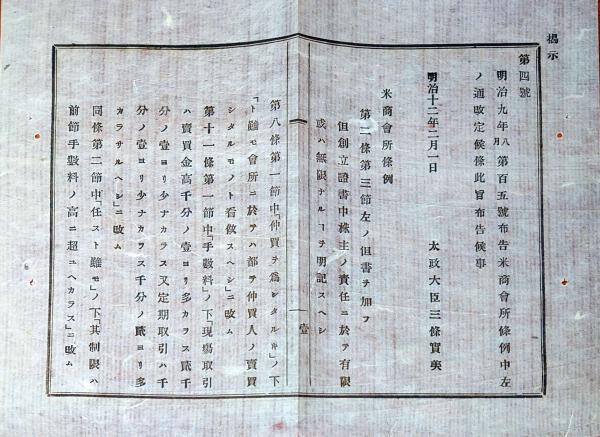 揭示
第四號
明治九年八月第百五號布告米商會所條例中左
ノ通改定候條此旨布告候事
明治十二年二月一日
太政大臣三條實美
米商會所條例
第二條第三節左ノ但書ヲ加フ
但創立證書中株主ノ責任ニ於テ有限
或ハ無限ナルヿヲ明記スヘシ
壹
第八條第一節中「仲買ヲ爲シタルキ」ノ下
「ト雖モ會所ニ於テハ都テ仲買人ノ賣買
シタルモノト看做スヘシ」ニ改ム
第十一條第一節中「手數料」ノ下「現塲取引
ハ賣買金高千分ノ壹ヨリ多カラス貳千
分ノ壹ヨリ少ナカラス又定期取引ハ千
分ノ壹ヨリ少ナカラス千分ノ貳ヨリ多
カラサルヘシ」ニ改ム
同條第二節中「任スト雖モ」ノ下「其制限ハ
前節手數料ノ高ニ超ユヘカラス」ニ改ム